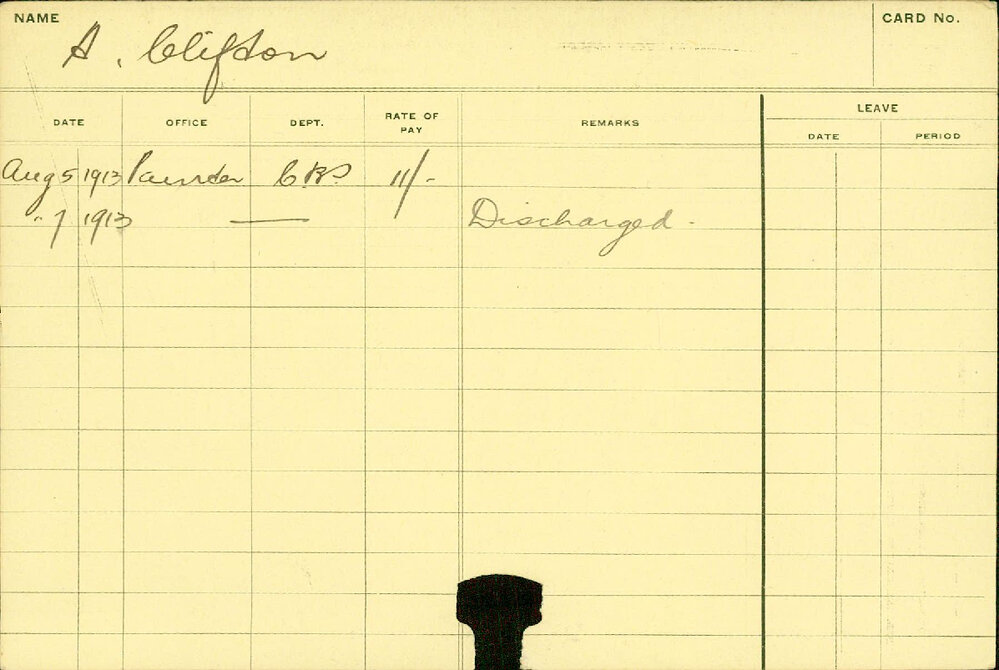 NAME
A. Clifton
CARD No.
DATE OFFICE DEPT. RATE OF PAY REMARKS LEAVE
DATE PERIOD
Aug 5 1913 Painter 11/-
" 7 1913 — Discharged -